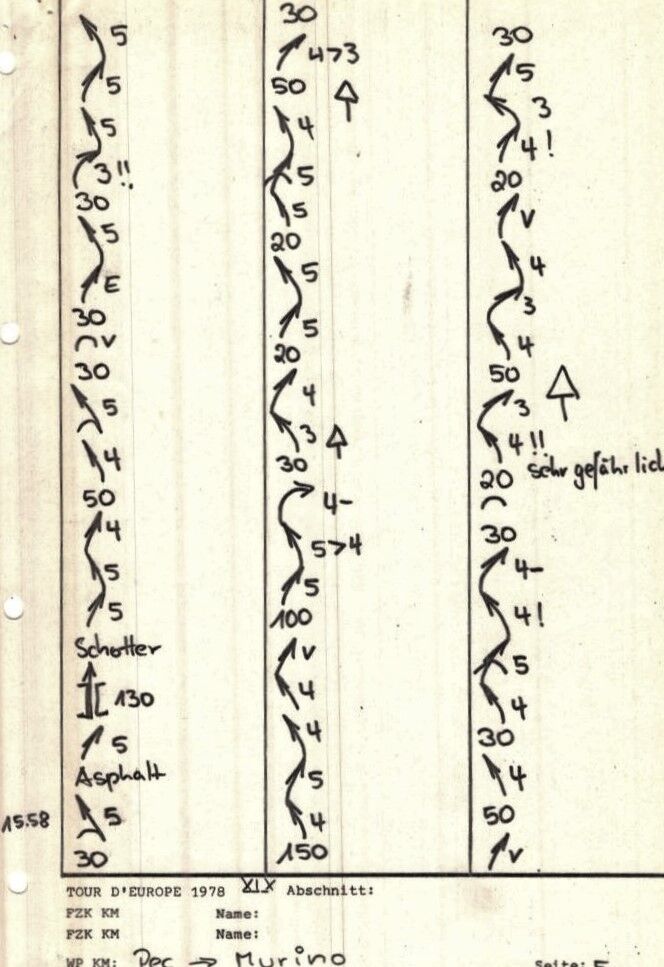 5
5
5
3!!
30
5
E
30
v
30
5
4
50
4
5
5
Schotter
130
5
Asphalt
15.58 5
30
30
4>3
50
4
5
5
20
5
5
20
4
3
30
4-
5>4
5
100
v
4
4
5
4
150
30
5
3
4!
20
v
4
3
4
50
3
4!! sehr gefährlich
20
30
4-
4!
5
4
30
4
50
v
TOUR D'EUROPE 1978 XIX Abschnitt:
FZK KM Name:
FZK KM Name:
WP KM: Pec → Murino Seite: